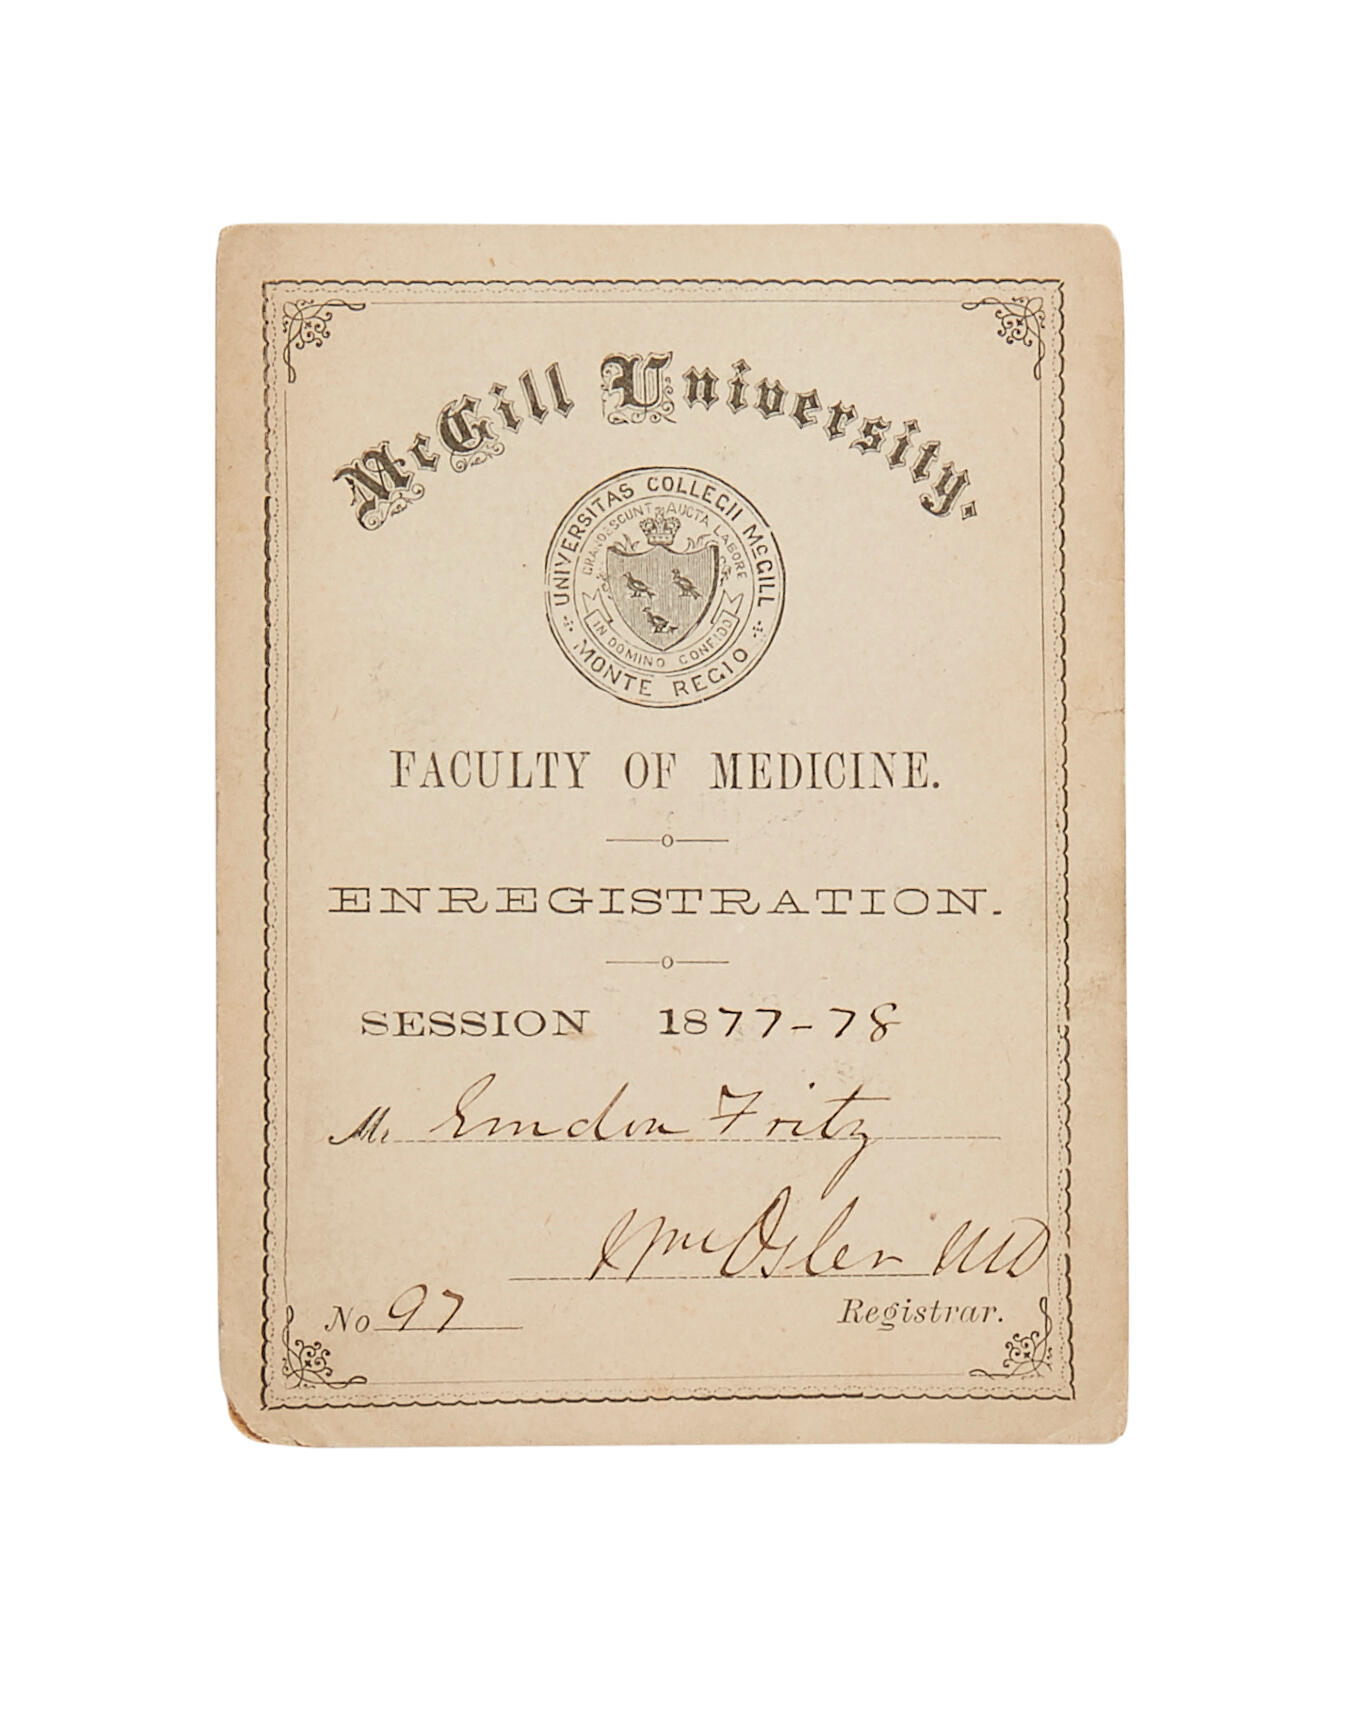 McGill University.
UNIVERSITAS COLLEGII McGILL
GRANDESCUNT AUCTA LABORE
IN DOMINO CONFIDO
MONTE REGIO
FACULTY OF MEDICINE.
ENREGISTRATION.
SESSION 1877-78
Mr Emdon Fritz
Wm Osler MD
No 97 Registrar.